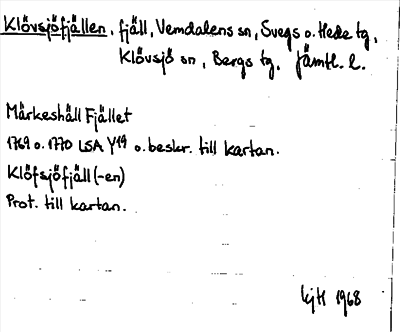 Klövsjöfjällen, fjäll, Vemdalens sn, Svegs o. Hede tg,
Klövsjö sn, Bergs tg, Jämtl. l.
Märkeshåll Fjället
1769 o. 1770 LSA Y19 o. beskr. till kartan.
Klöfsjöfjäll (-en)
Prot. till kartan.
1968